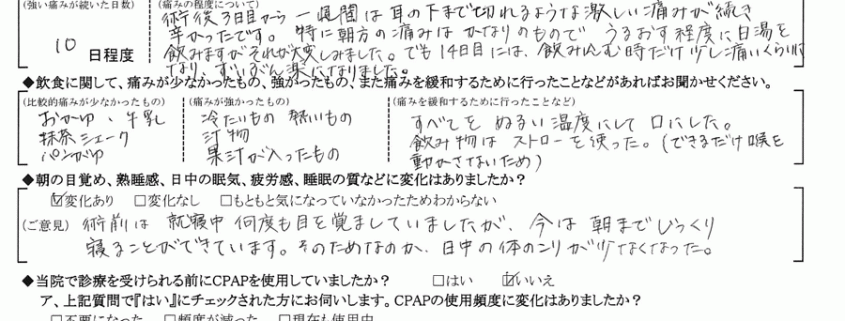 (強い痛みが続いた日数) (痛みの程度について)
10 日程度
術後3日目から一週間は耳の下まで切れるような激しい痛みが続き
辛かったです。特に朝方の痛みはかなりのもので うるおす程度に白湯を
飲みますがそれが大変しみました。でも14日目には、飲み込む時だけ少し痛いくらいに
なり、ずいぶん楽になりました。
◆飲食に関して、痛みが少なかったもの、強かったもの、また痛みを緩和するために行ったことなどがあればお聞かせください。
(比較的痛みが少なかったもの) (痛みが強かったもの) (痛みを緩和するために行ったことなど)
おかゆ、牛乳
抹茶シェーク
パンがゆ
冷たいもの 熱いもの
汁物
果汁が入ったもの
すべてを ぬるい温度にして 口にした。
飲み物は ストローを使った。(できるだけ喉を
動かさないため)
◆朝の目覚め、熟睡感、日中の眠気、疲労感、睡眠の質などに変化はありましたか?
☑変化あり □変化なし □もともと気になっていなかったためわからない
(ご意見) 術前は 就寝中 何度も目を覚ましていましたが、今は 朝までじっくり
寝ることができています。そのためなのか、日中の体のこりが少なくなった。
◆当院で診療を受けられる前にCPAPを使用していましたか? □はい ☑いいえ
ア、上記質問で『はい』にチェックされた方にお伺いします。CPAPの使用頻度に変化はありましたか?
□不要になった □頻度が減った □現在も使用中